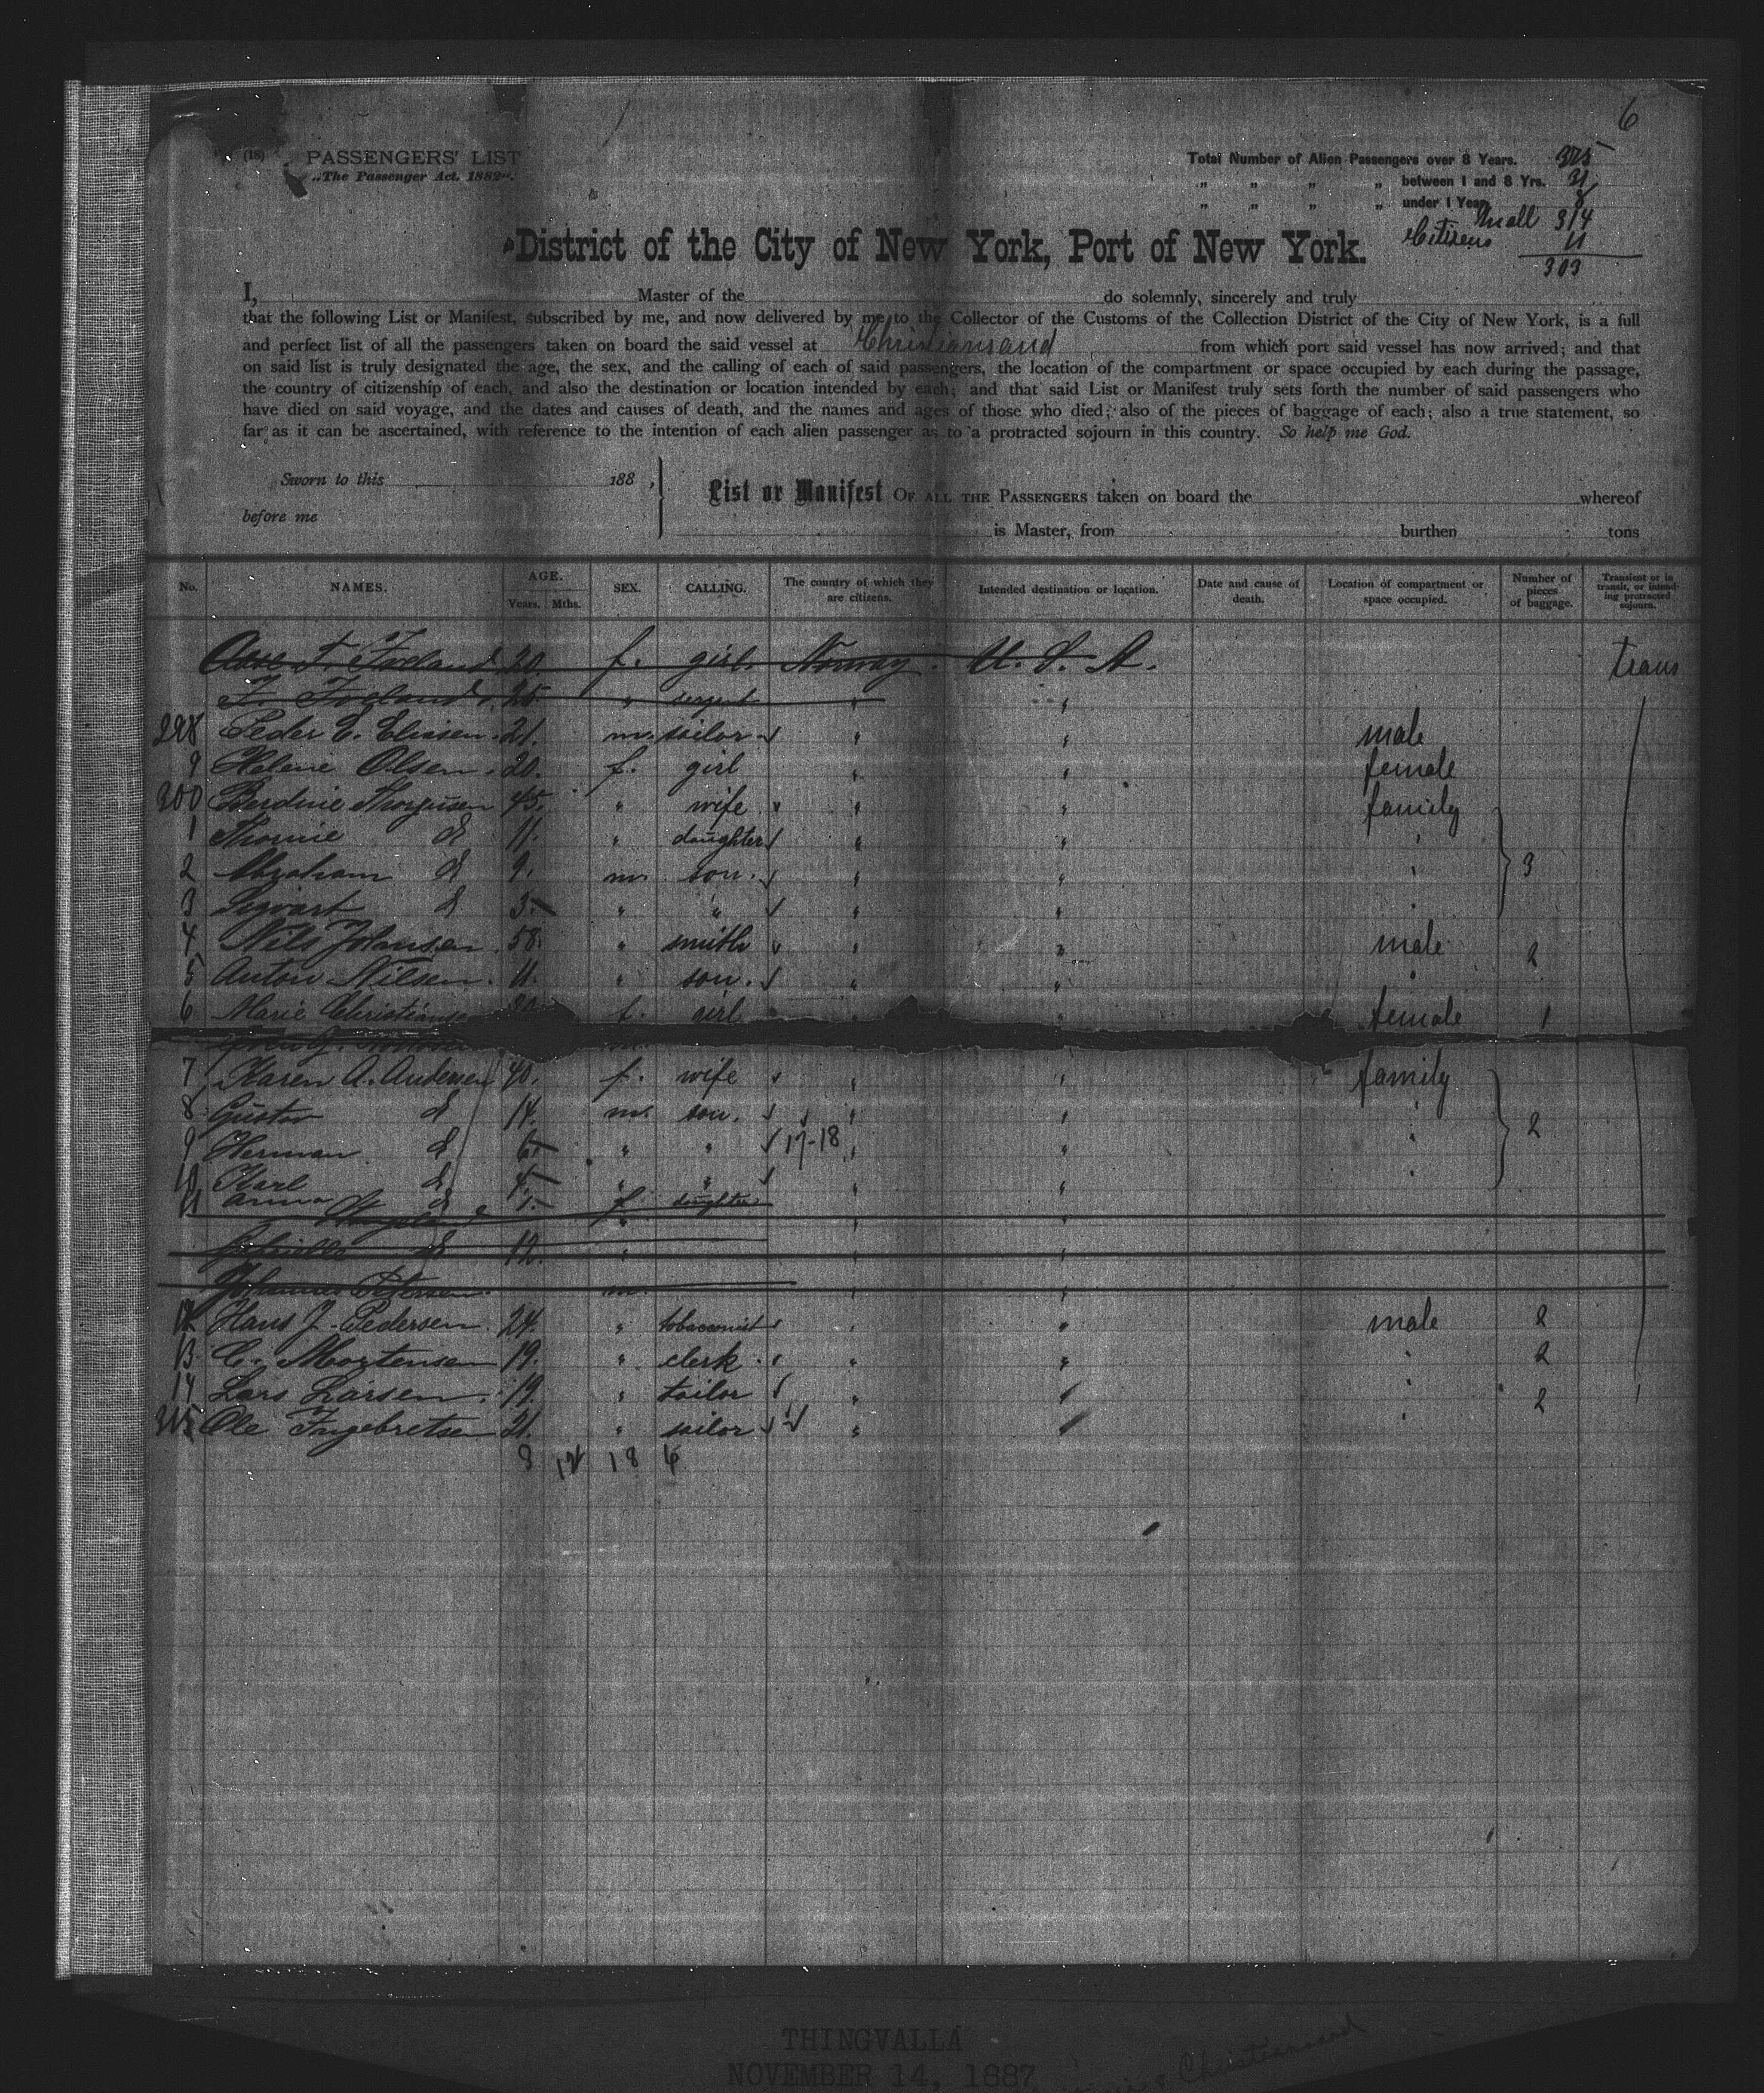 6
(18) PASSENGERS' LIST
„The Passenger Act. 1882".
Total Number of Alien Passengers over 8 Years.
„ „ „ „ between 1 and 8 Yrs.
„ „ „ „ under 1 Year
In all 314
Citizens 11
303
District of the City of New York, Port of New York.
I, Master of the do solemnly, sincerely and truly
that the following List or Manifest, subscribed by me, and now delivered by me to the Collector of the Customs of the Collection District of the City of New York, is a full
and perfect list of all the passengers taken on board the said vessel at Christiansand from which port said vessel has now arrived; and that
on said list is truly designated the age, the sex, and the calling of each of said passengers, the location of the compartment or space occupied by each during the passage,
the country of citizenship of each, and also the destination or location intended by each; and that said List or Manifest truly sets forth the number of said passengers who
have died on said voyage, and the dates and causes of death, and the names and ages of those who died; also of the pieces of baggage of each; also a true statement, so
far as it can be ascertained, with reference to the intention of each alien passenger as to a protracted sojourn in this country. So help me God.
Sworn to this 188 ,
before me
List or Manifest OF ALL THE PASSENGERS taken on board the whereof
is Master, from burthen tons
No. NAMES. AGE. Years. Mths. SEX. CALLING. The country of which they are citizens. Intended destination or location. Date and cause of death. Location of compartment or space occupied. Number of pieces of baggage. Transient or in transit, or intending protracted sojourn.
20. f. girl. Norway. U. S. A. trans
25. " servant " "
298 Peder E. Eliasen. 21. m. sailor " " male
9 Helene Olsen. 20. f. girl " " female
300 45. " wife " " family
1 11. " daughter " " "
2 Abraham d 9. m. son. " " " 3
3 Sigvart d 3. " " " " "
4 Nils Johansen. 58. " smith " " male 2
5 Anton Nilsen. 11. " son. " " "
6 Marie f. girl " " female 1
7 Karen A. Andersen 40. f. wife " " family
8 Gustav d 14. m. son. " " "
9 Herman d 6 " " 17-18 " " " 2
10 Karl d 4 " " " " "
11 Anna d 1 f. daughter
Gabrielle d 12. " " "
Johannes Petersen. m. " "
12 Hans J. Pedersen. 24. " tobacconist " " male 2
13 C. Mortensen 19. " clerk. " " " 2
14 Lars Larsen. 19. " tailor " " 2
315 Ole Ingebretsen 21. " sailor "
8 12 18 6
THINGVALLA
NOVEMBER 14, 1887
& Christiansand